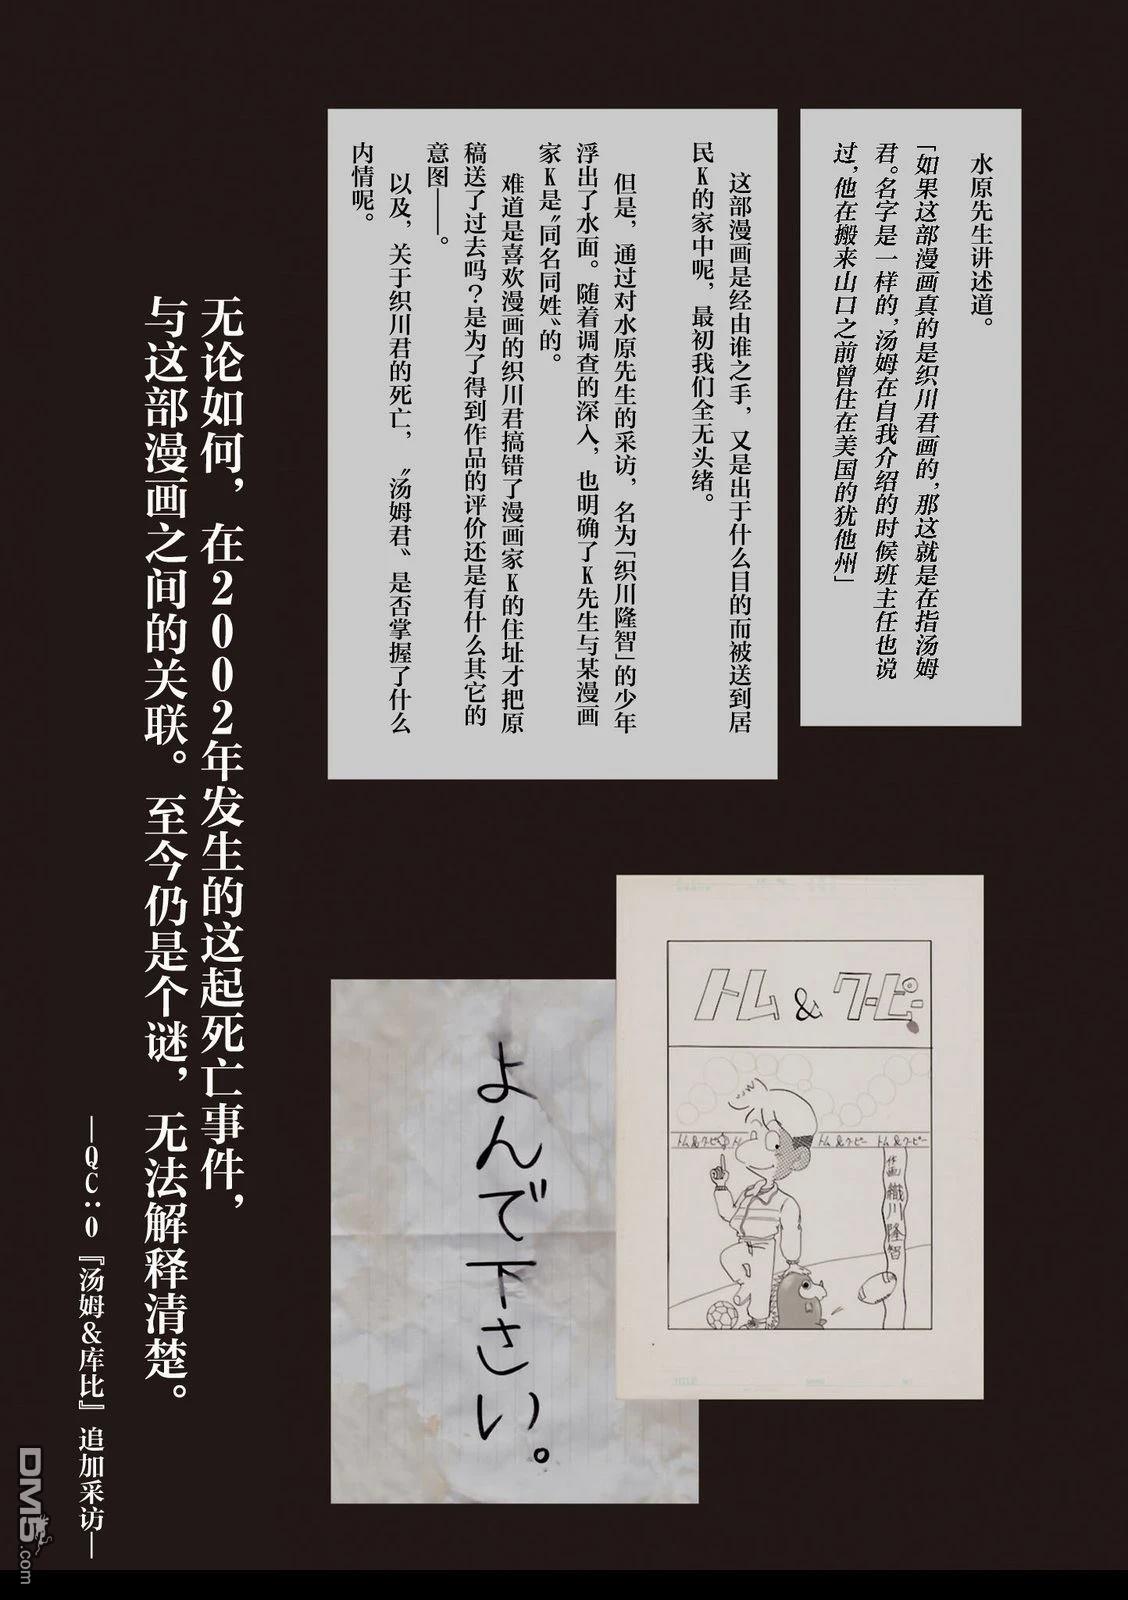 水原先生讲述道。
「如果这部漫画真的是织川君画的，那这就是在指汤姆
君。名字是一样的，汤姆在自我介绍的时候班主任也说
过，他在搬来山口之前曾住在美国的犹他州」
这部漫画是经由谁之手，又是出于什么目的而被送到居
民K的家中呢，最初我们全无头绪。
但是，通过对水原先生的采访，名为「织川隆智」的少年
浮出了水面。随着调查的深入，也明确了K先生与某漫画
家K是〝同名同姓〟的。
难道是喜欢漫画的织川君搞错了漫画家K的住址才把原
稿送了过去吗？是为了得到作品的评价还是有什么其它的
意图——。
以及，关于织川君的死亡，〝汤姆君〟是否掌握了什么
内情呢。
トム＆クーピー
トム＆クーピー ト
トム＆クーピー トム＆クーピー
作画 織川隆智
よんで下さい。
无论如何，在2002年发生的这起死亡事件，
与这部漫画之间的关联。至今仍是个谜，无法解释清楚。
—QC:0『汤姆&库比』追加采访—
DM5.com